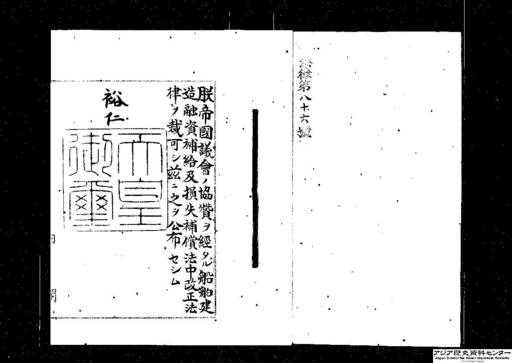 法律第八十六號
朕帝國議會ノ協贊ヲ經タル船舶建
造融資補給及損失補償法中改正法
律ヲ裁可シ茲ニ之ヲ公布セシム
裕仁
天皇
御璽
アジア歴史資料センター
Japan Center for Asian Historical Records